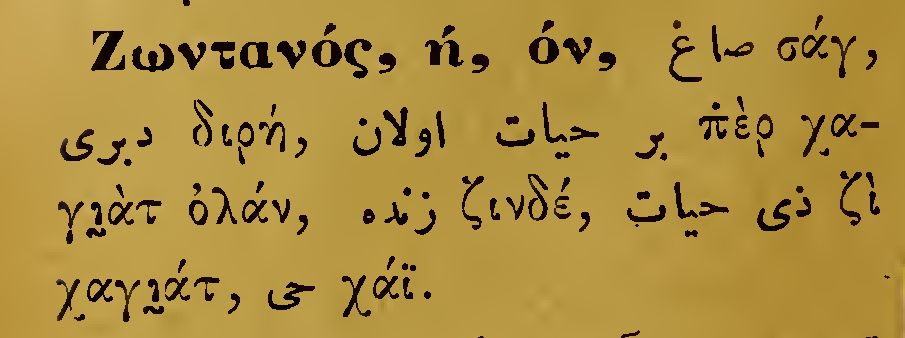 Ζωντανός, ή, όν, صاغ σάγ,
دیری διρή, بر حیات اولان π̇ὲρ χ̣α-
γι̰ὰτ ὀλάν, زنده ζινδέ, ذی حیات ζὶ
χ̣αγι̰άτ, حی χάϊ.